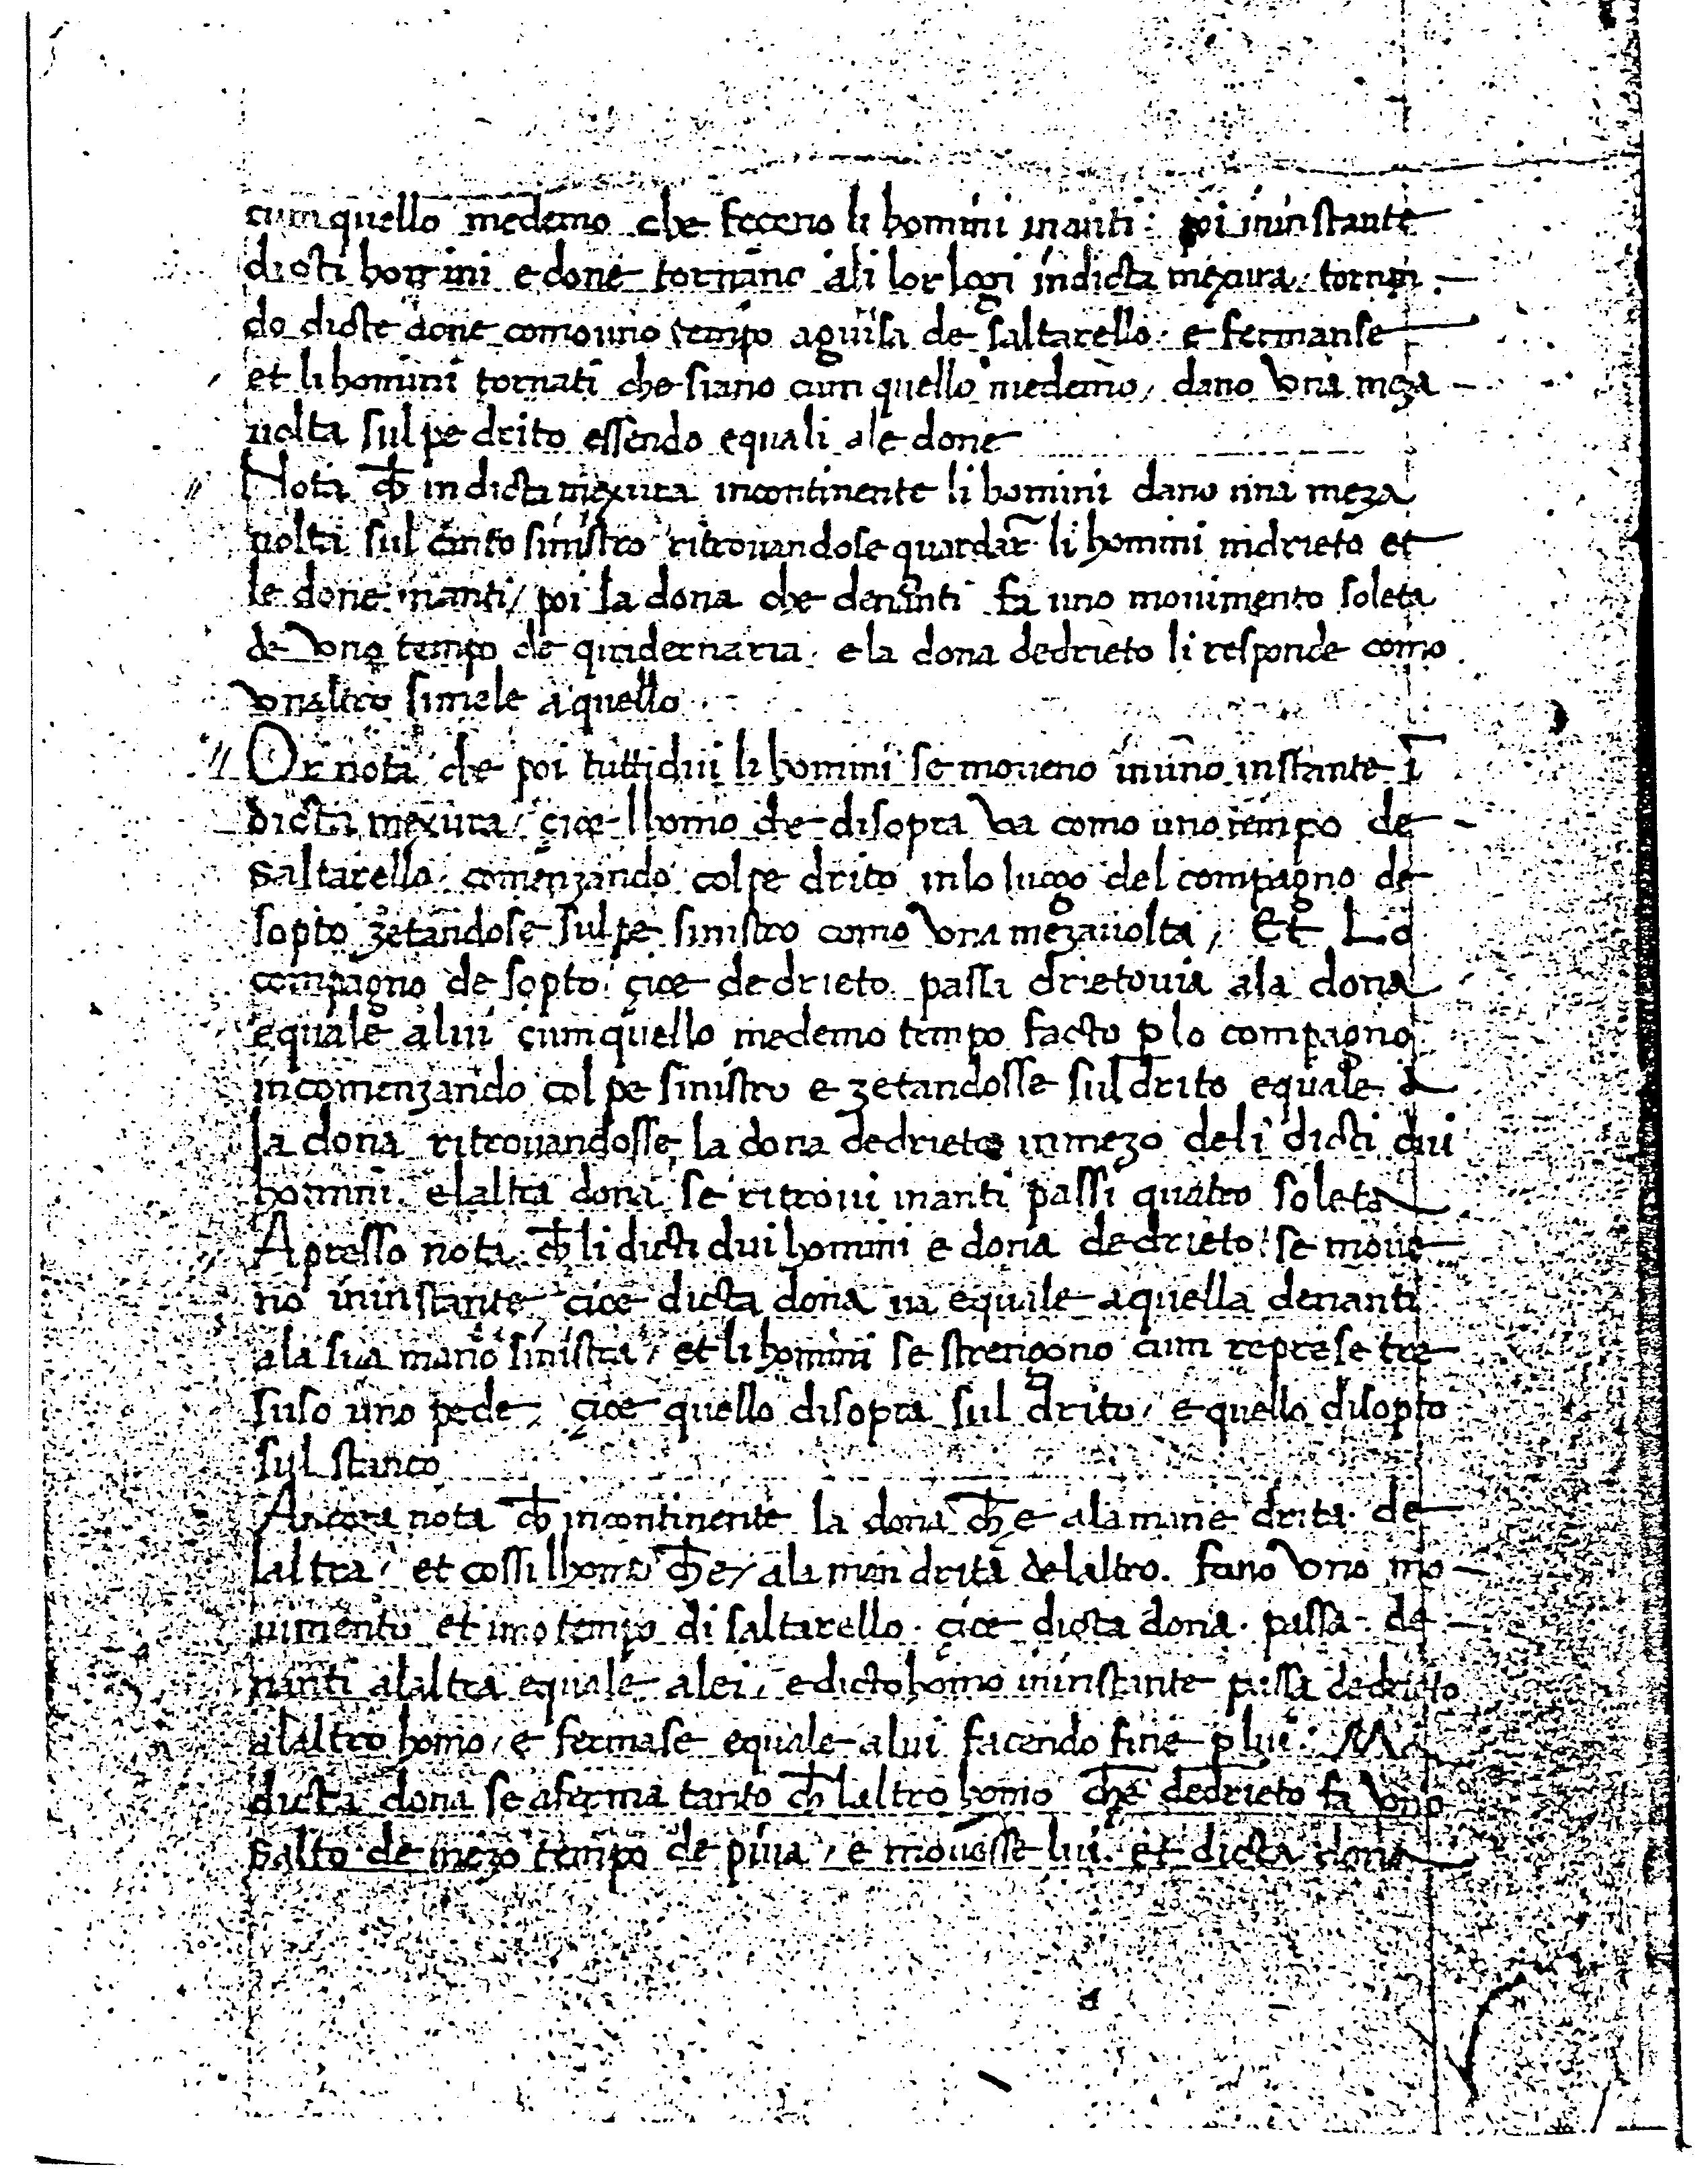 cum quello medemo che feceno li homini inanti: poi in instante
dicti homini e done tornano ali lor logi in dicta mexura, tornan
do dicte done como uno tempo a guisa de saltarello. e fermanse
et li homini tornati che siano cum quello medemo, dano una meza
uolta sul pe drito essendo equali ale done
Nota ch̄ in dicta mexura incontinente li homini dano una meza
uolta sul sinistro ritrouandose guardar̄ li homini indrieto et
le done inanti, poi la dona che denanti fa uno mouimento soleta
de uno tempo de quadernaria. e la dona dedrieto li responde como
unaltro simele a quello
Or nota che poi tutti dui li homini se moueno in uno instante ī
dicta mexura, cioe lhomo che disopra va como uno tempo de
saltarello. comenzando col pe drito in lo luogo del compagno de
sopto zetandose sul pe sinistro como una meza uolta, Et Lo
compagno de sopto. cioe dedrieto passa drieto uia ala dona
equale a lui cum quello medemo tempo facto p̱ lo compagno
incomenzando col pe sinistro e zetandosse sul drito equale a
la dona ritrouandosse la dona dedrieto in mezo deli dicti dui
homini. e laltra dona se ritroui inanti passi quatro soleta
Apresso nota. ch̄ li dicti dui homini e dona dedrieto se moue
no in instante, cioe dicta dona ua equale a quella denanti
ala sua mano sinistra, et li homini se strengono cum represe tre
suso uno pede, cioe quello disopra sul drito, e quello disopto
sul stanco
Ancora nota ch̄ incontinente la dona ch̄ e ala mane drita. de
laltra, et cossi lhomo ch̄ e, ala man drita de laltro. fano uno mo
uimento et uno tempo di saltarello. cioe dicta dona. passa. de
nanti a laltra equale a lei, e dicto homo in instante passa dedrieto
a laltro homo, e fermase equale a lui facendo fine p̱ lui. Ma
dicta dona se aferma tanto ch̄ laltro homo che dedrieto fa uno
salto de mezo tempo de piua, e mouesse lui. et dicta dona